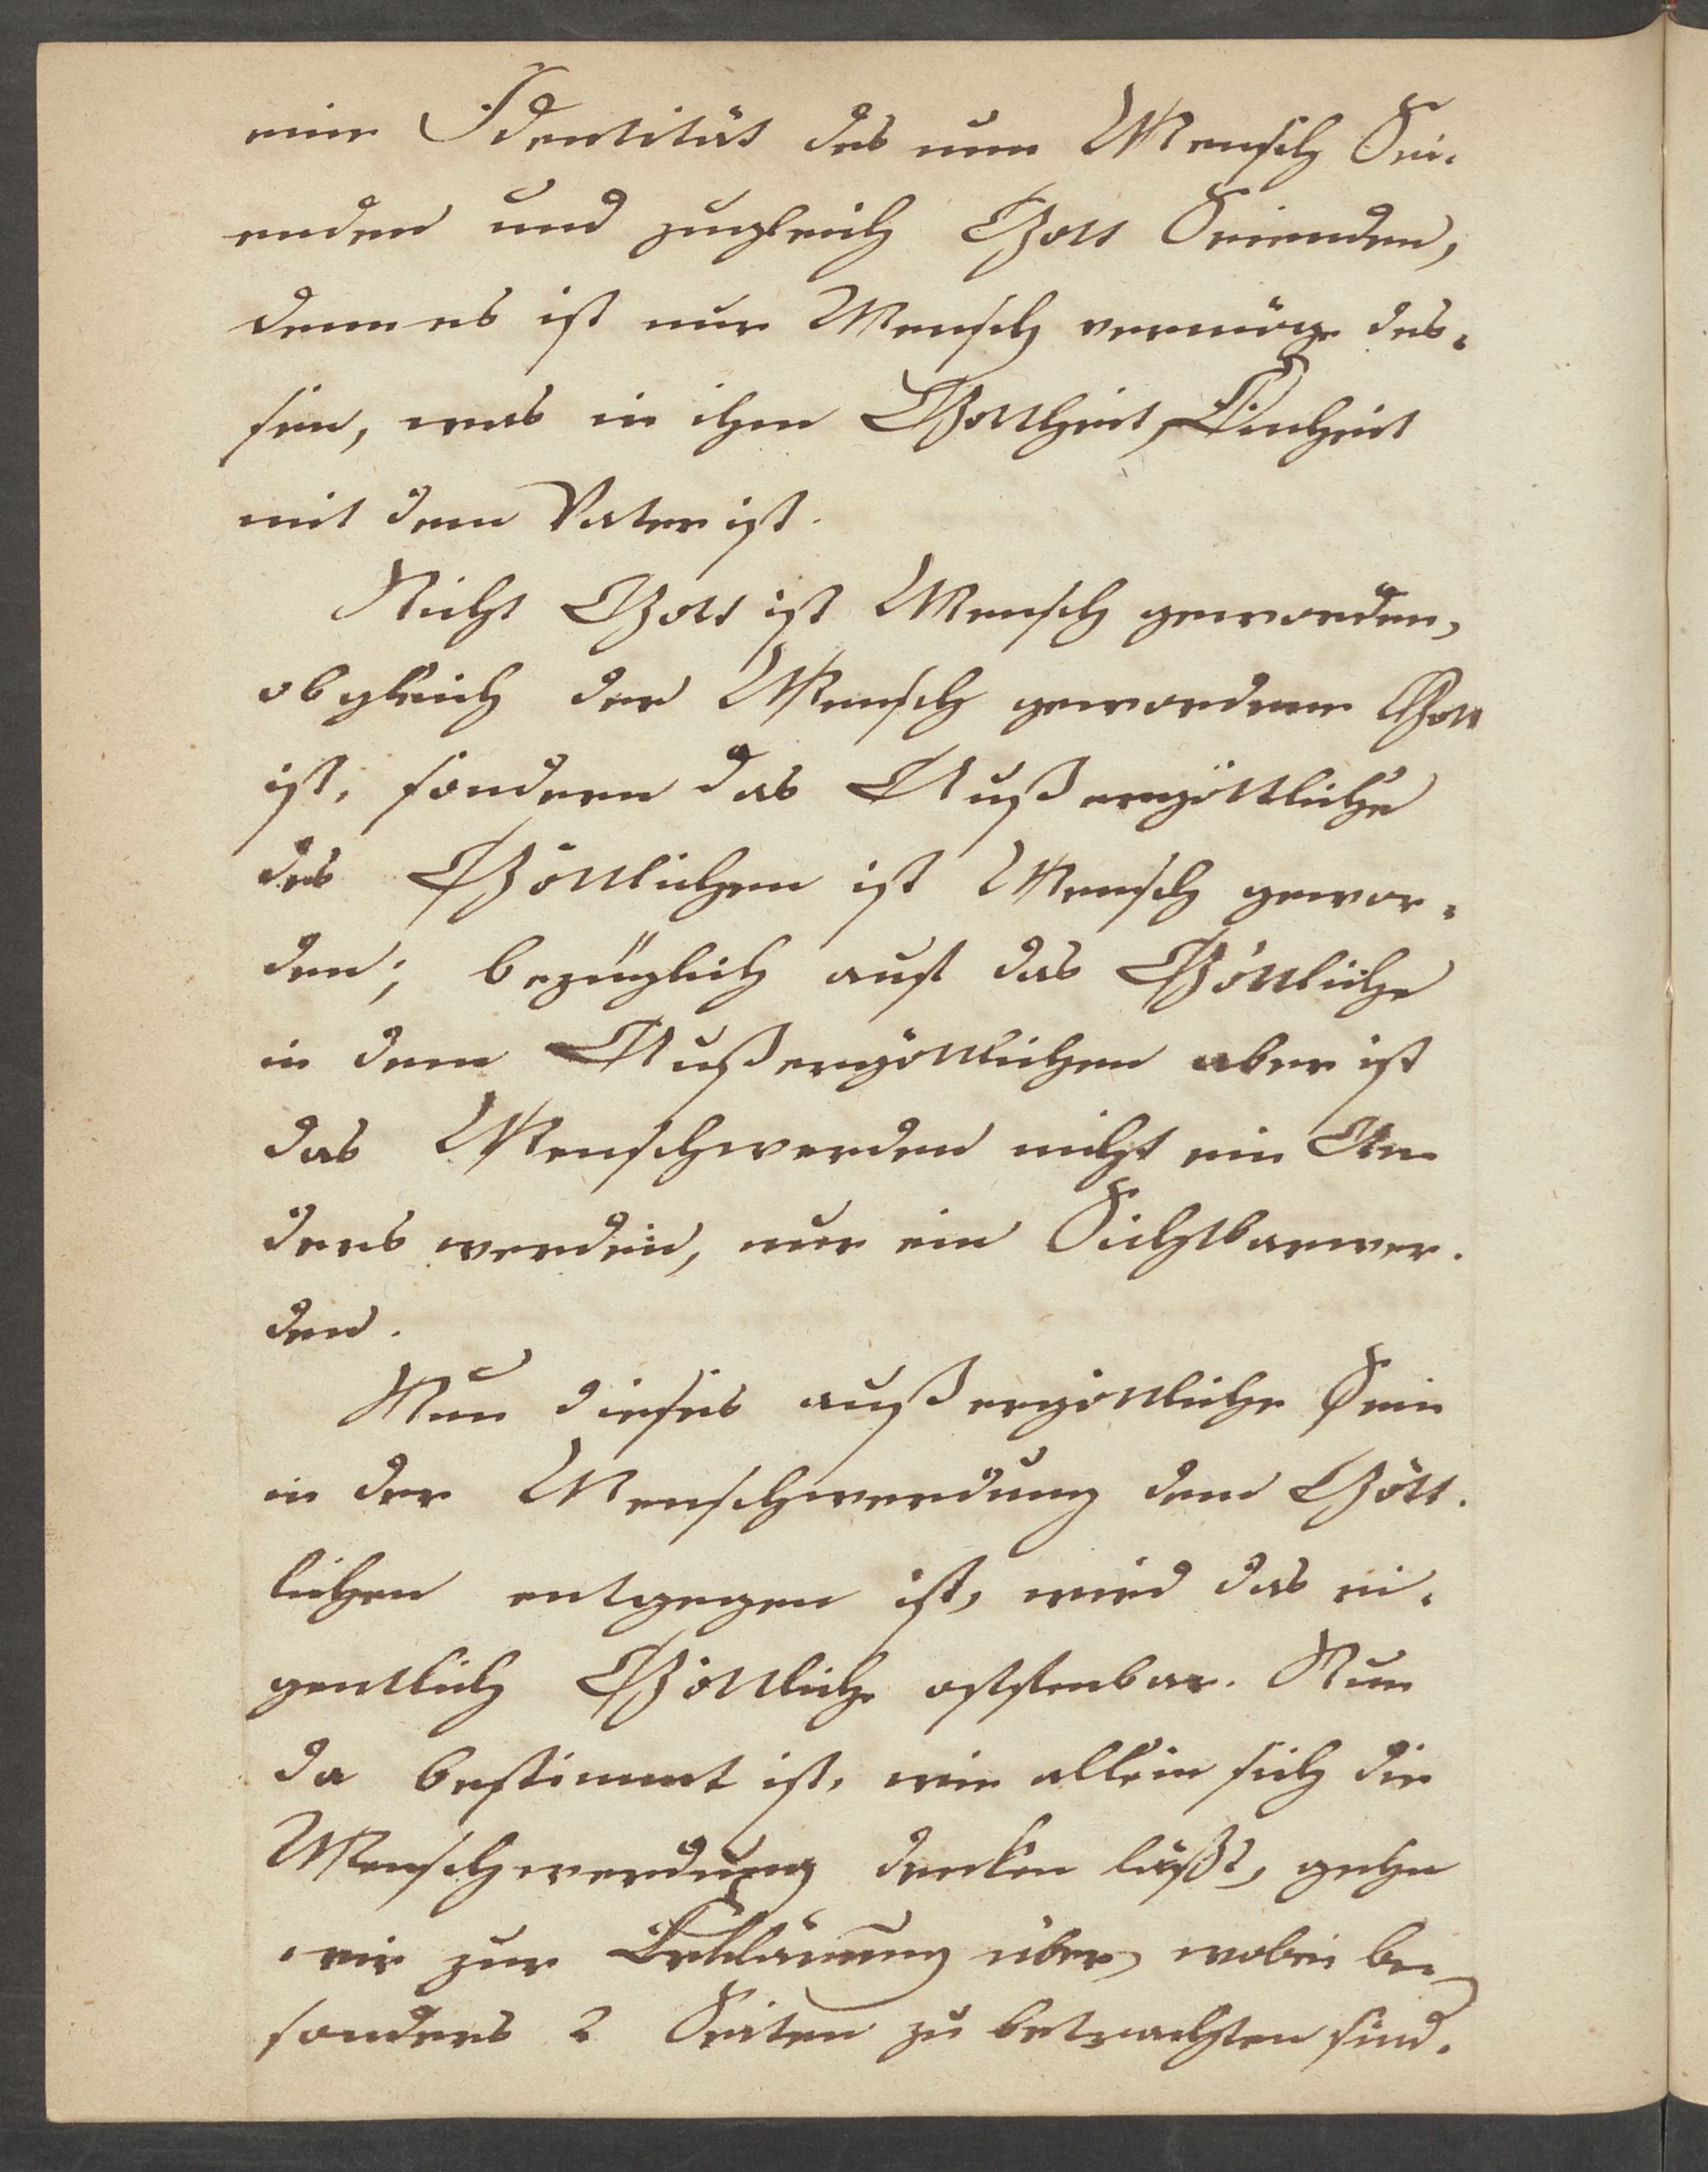 eine Identität des nun Mensch Sei-
enden und zugleich Gott Seienden,
denn es ist nur Mensch vermöge des-
sen, was in ihm Gottheit, Einheit
mit dem Vater ist.
Nicht Gott ist Mensch geworden,
obgleich der Mensch gewordene Gott
ist, sondern das Außergöttliche
des Göttlichen ist Mensch gewor-
den; bezüglich auf das Göttliche
in dem Außergöttlichen aber ist
das Menschwerden nicht ein An
ders werden, nur ein Sichtbarwer-
den.
Nun dieses außergöttliche Sein
in der Menschwerdung dem Gött-
lichen entgegen ist, wird das ei-
gentlich Göttliche offenbar. Nun
da bestimmt ist, wie allein sich die
Menschwerdung denken läßt, gehn
wir zur Erklärung über, wobei be-
sonders 2 Seiten zu betrachten sind.